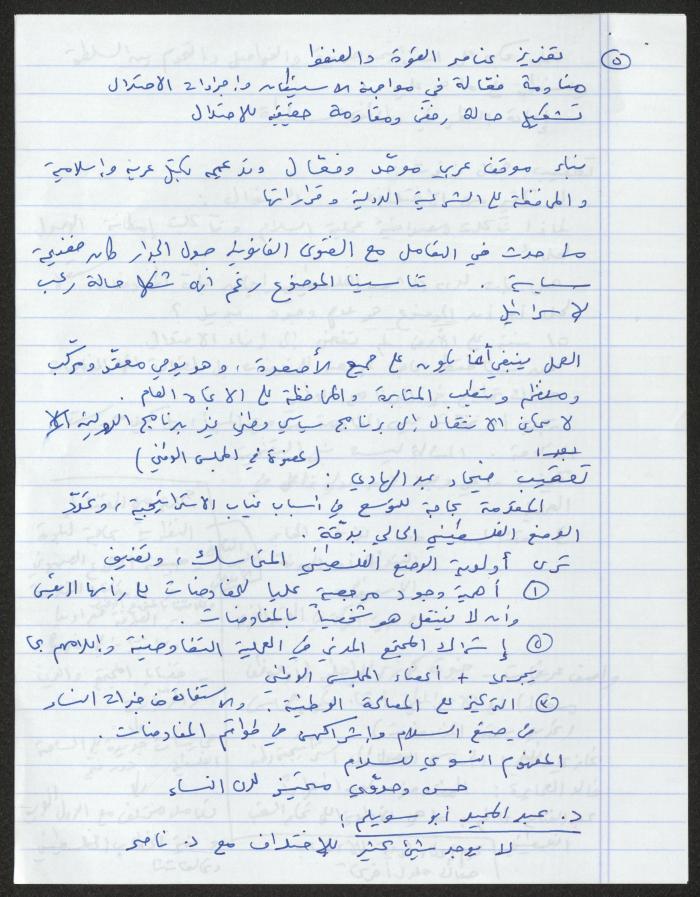 ⑤ تعزيز عناصر القوة والضغط
مقاومة فعّالة في مواجهة الاستيطان وإجراءات الاحتلال
تشكيل حالة رفض ومقاومة حقيقية للاحتلال
بناء موقف عربي موحّد وفعّال وتدعيمه بكتل عربية وإسلامية
والمحافظة على الشرعية الدولية وقراراتها
ما حدث في التعامل مع الفتوى القانونية حول الجدار كان فضيحة
سياسية. تناسينا الموضوع رغم أنه شكل حالة رعب
لإسرائيل
العمل ينبغي أن يكون على جميع الأصعدة، وهو يومي معقّد ومركّب
ومنظم ويتطلب المتابعة والمحافظة على الاتجاه العام.
لا يمكن الانتقال إلى برنامج سياسي وطني
(عضوة في المجلس الوطني)
تعقيب جهاد عبد الهادي:
المقدمة بحاجة للتوسع في أسباب غياب الاستراتيجية، وتحدّد
الوضع الفلسطيني الحالي بدقّة.
ترى أولوية الوضع الفلسطيني المتماسك، وتضيف
① أهمية وجود مرجعية عليا للمفاوضات على رأسها الرئيس
وأن لا ينتقل هو شخصياً بالمفاوضات.
⑤ إشراك المجتمع المدني في العملية التفاوضية وإعلامهم بما
يجري + أعضاء المجلس الوطني
③ التركيز على المصالحة الوطنية، والاستفادة من خبرات النساء
في صنع السلام وإشراكهن في طواقم المفاوضات.
المفهوم النسوي للسلام
حسن وحدّوي متميّز لدى النساء
د. عبد المجيد أبو سويلم:
لا يوجد شيئ كثير للاختلاف مع د. ناصر